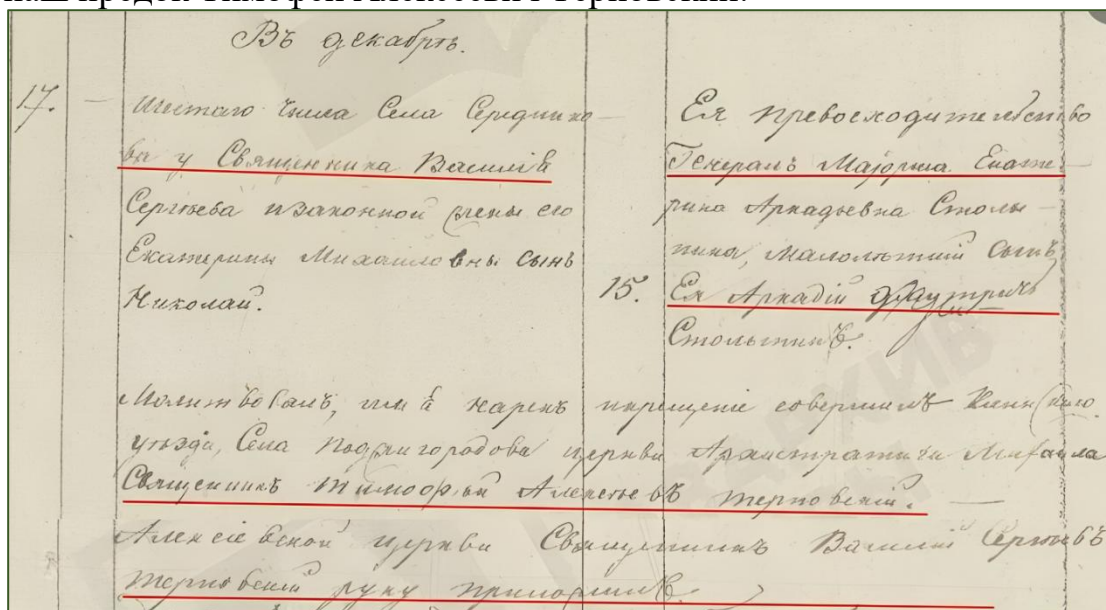 наш предок Тимофей Алексеевич Терновский.
Въ декабрѣ.
17. — Шестаго числа Села Середнико-
ва у Священника Василія
Сергѣева и законной жены его
Екатерины Михаиловны сынъ
Николай.
Ея превосходительство
Генералъ Маіорша Екате-
рина Аркадьевна Столы-
пина, малолѣтній сынъ
15. Ея Аркадій
Столыпинъ.
Молитвовалъ, имя нарекъ и крещеніе совершилъ
уѣзда, Села церкви Архистратига Михаила
Священникъ Тимоѳей Алексѣевъ Терновскій. —
Алексіевской церкви Священникъ Василій Сергѣевъ
Терновскій руку приложилъ.